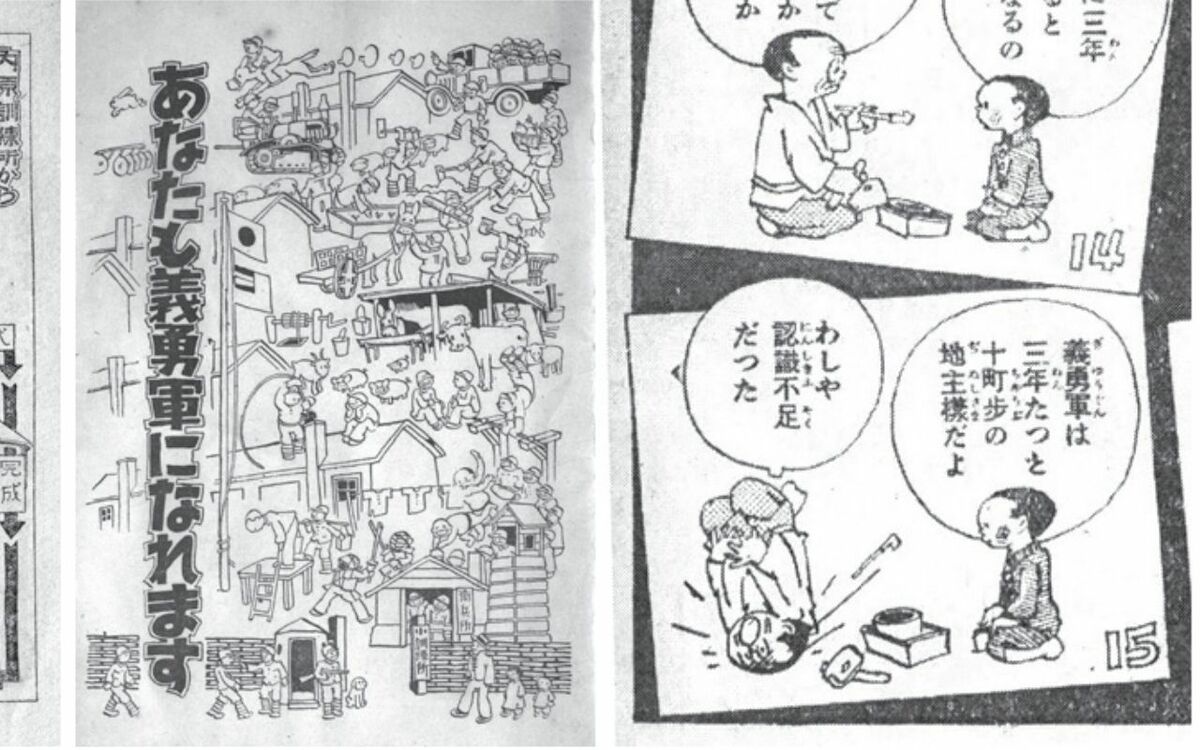 内原訓練所から
完成
あなたも義勇軍になれます
衛兵所
小訓練所
に三年
ると
なるの
て
か
か
14
義勇軍は
三年たつと
十町歩の
地主様だよ
わしや
認識不足
だつた
15